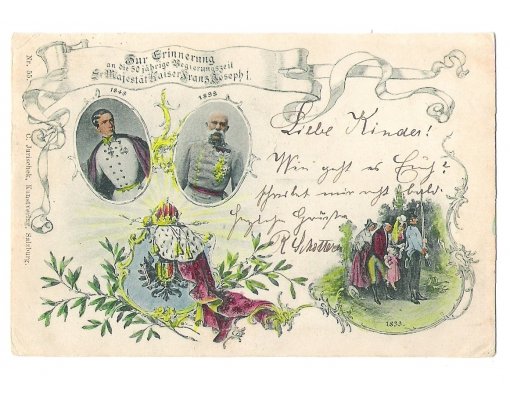 Zur Erinnerung
an die 50 jährige Regierungszeit
Sr Majestät Kaiser Franz Joseph I.
1848
1898
Nr. 55
C. Jurischek, Kunstverlag, Salzburg.
Liebe Kinder!
Wie geht es Euch?
schreibet mir recht bald.
herzliche Grüsse
R.
1853